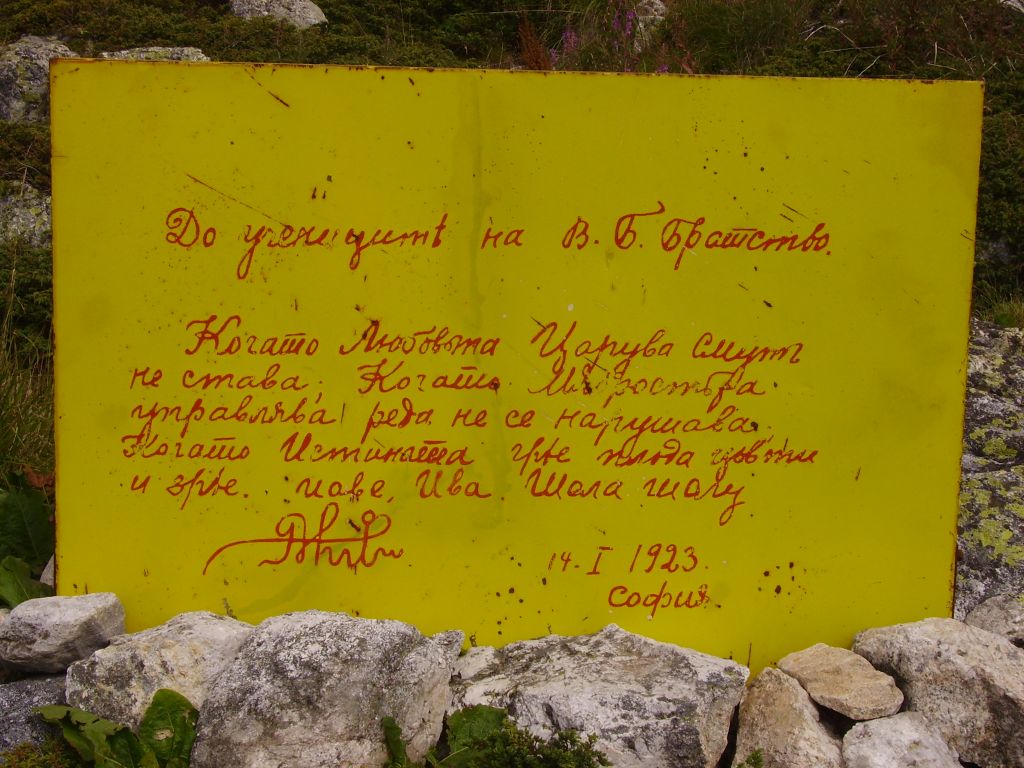 До ученицитѣ на В. Б. Братство.
Когато Любовьта Царува смутъ
не става. Когато Мѫдростьта
управлява реда не се нарушава.
Когато Истината грѣе плода цъвти
и зрѣе.
14. I 1923.
София.